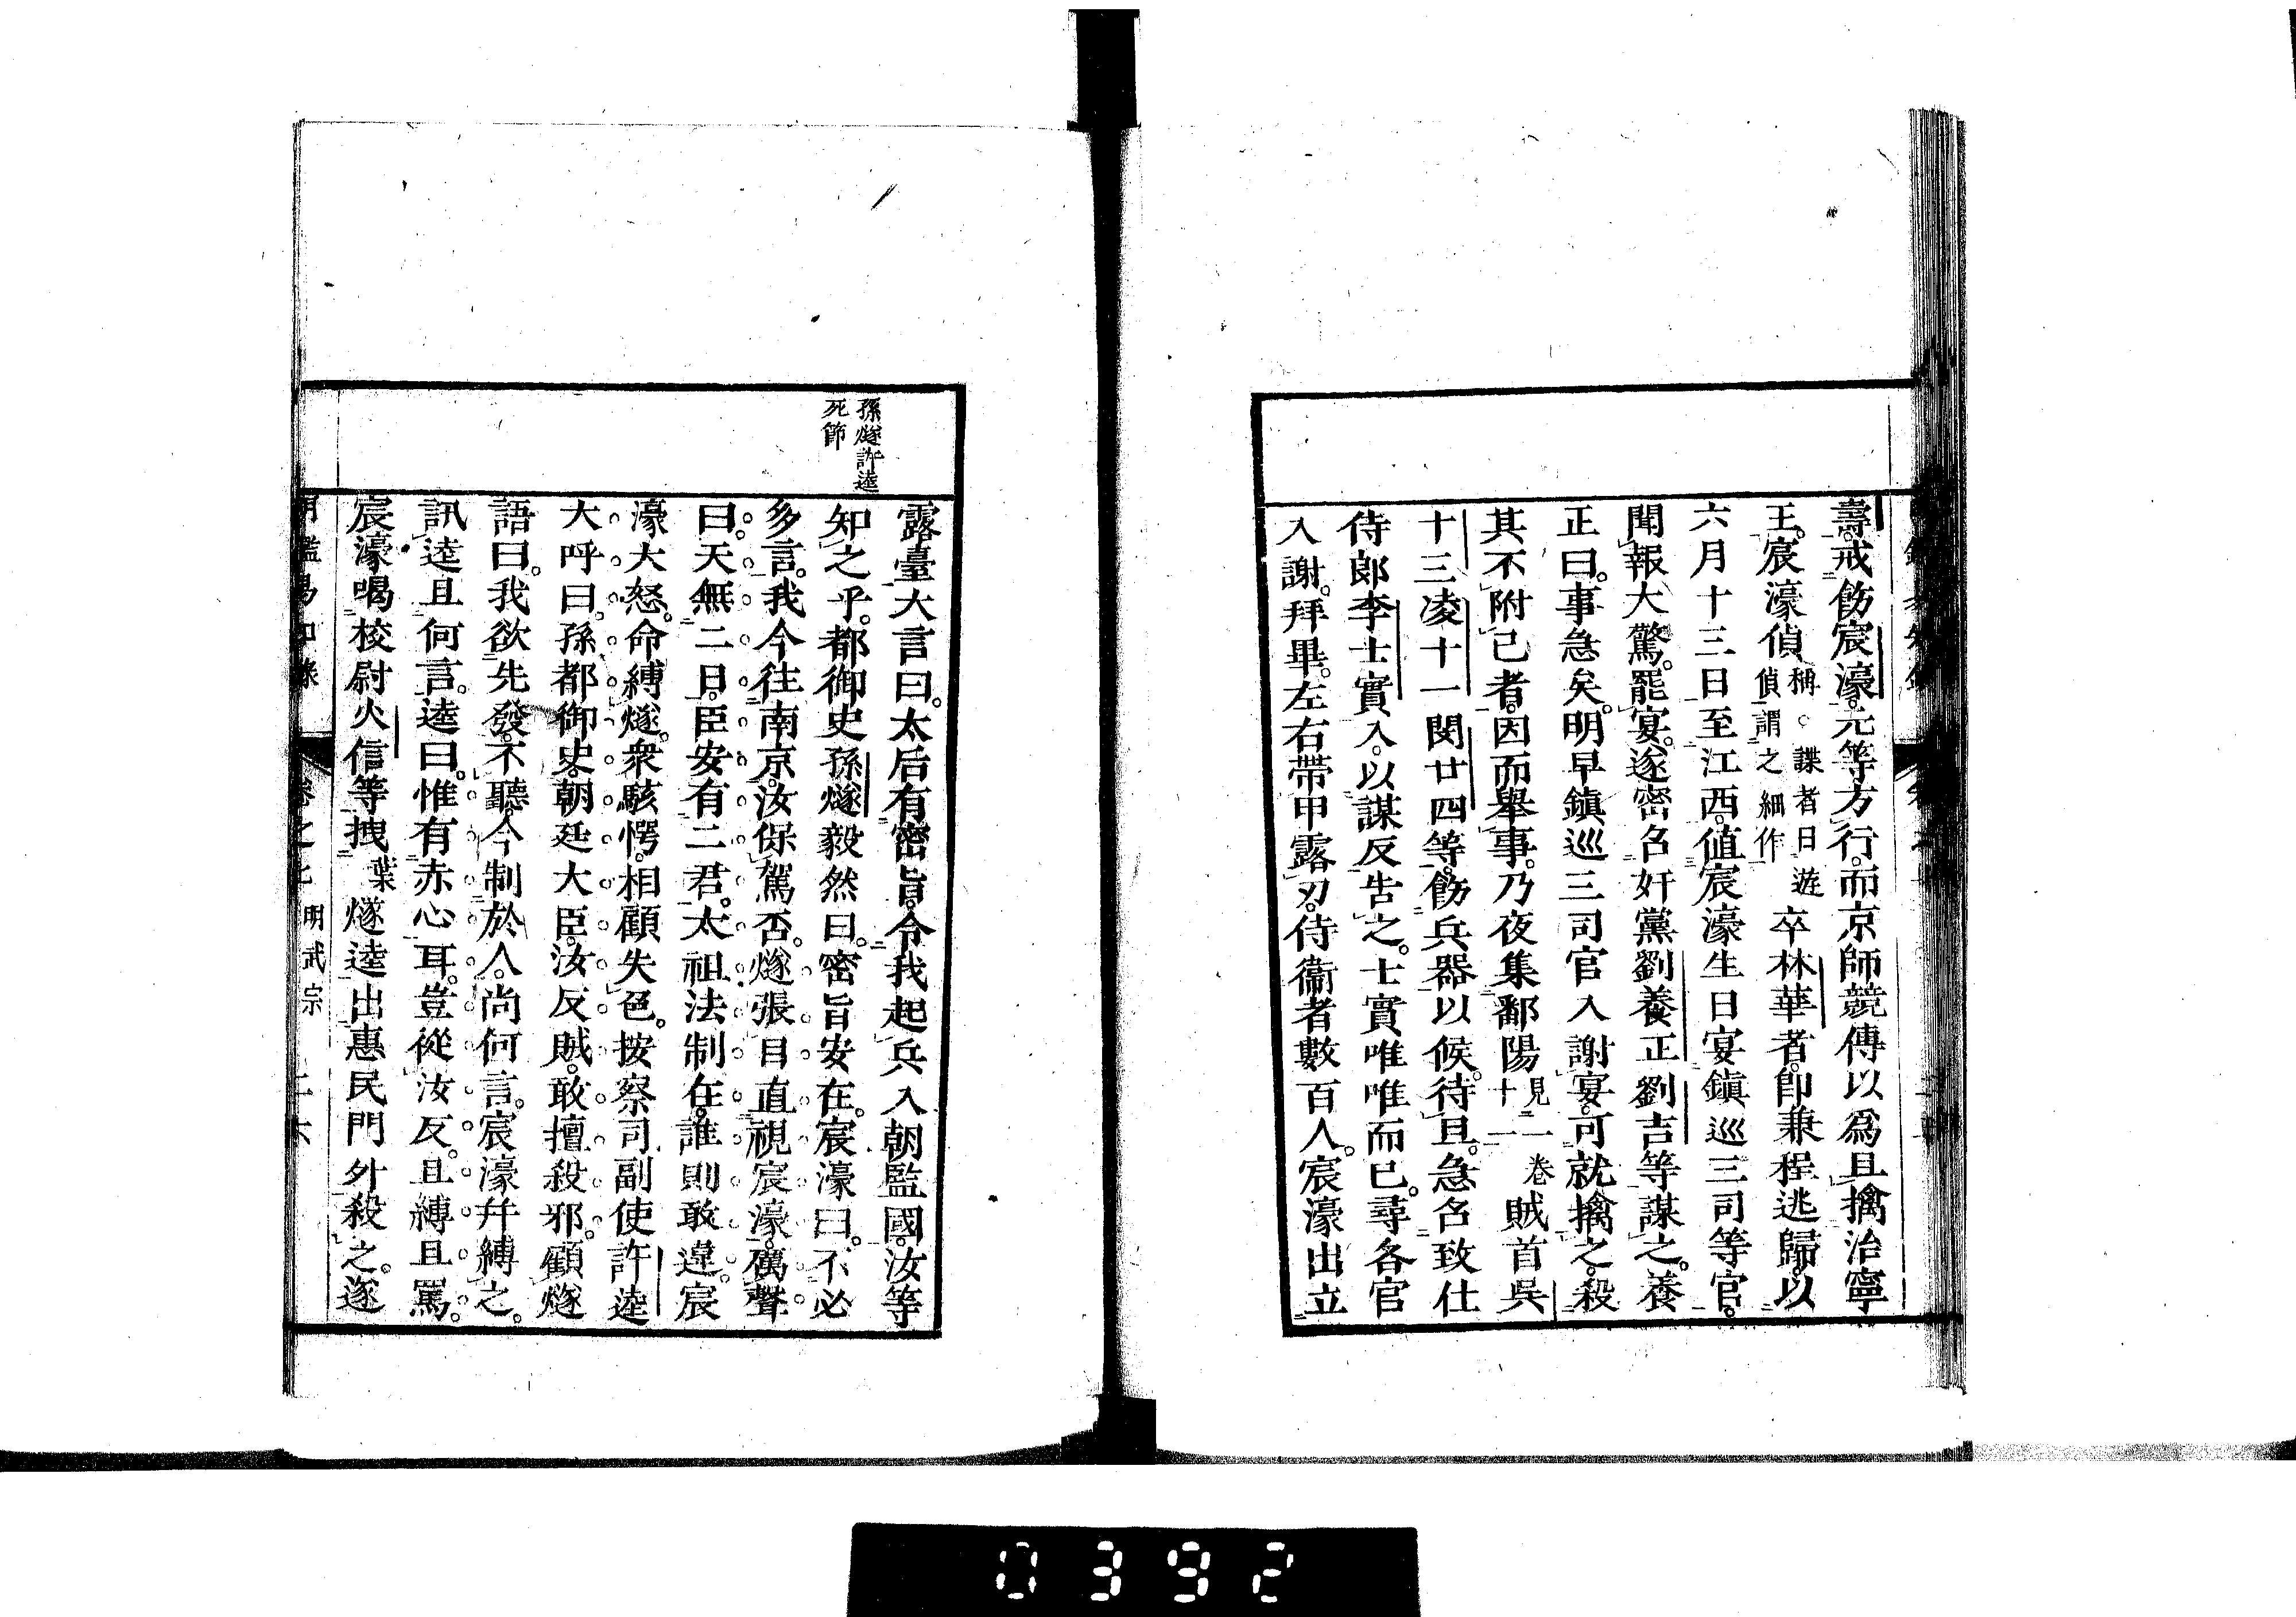 壽。戒飭宸濠。元等方行。而京師競傳以爲且擒治寧
王。宸濠偵稱。諜者日遊偵謂之細作卒林華者。卽兼程逃歸。以
六月十三日至江西。値宸濠生日宴鎭巡三司等官。
聞報大驚。罷宴。遂密召奸黨劉養正劉吉等謀之。養
正曰。事急矣。明早鎭巡三司官入謝宴。可就擒之。殺
其不附己者。因而舉事。乃夜集鄱陽見二卷十一賊首吳
十三凌十一閔廿四等。飭兵器以候。待旦。急召致仕
侍郎李士實入。以謀反告之。士實唯唯而已。尋各官
入謝。拜畢。左右帶甲露刃。侍衞者數百人。宸濠出立
孫燧許逵
死節
露臺大言曰。太后有密旨。令我起兵入朝監國。汝等
知之乎。都御史孫燧毅然曰。密旨安在。宸濠曰。不必
多言。我今往南京。汝保駕否。燧張目直視宸濠。厲聲
曰。天無二日。臣安有二君。太祖法制在。誰則敢違。宸
濠大怒。命縛燧。衆駭愕。相顧失色。按察司副使許逵
大呼曰。孫都御史。朝廷大臣。汝反賊。敢擅殺邪。顧燧
語曰。我欲先發。不聽。今制於人。尚何言。宸濠幷縛之。
訊逵且何言。逵曰。惟有赤心耳。豈從汝反。且縛且罵。
宸濠喝校尉火信等拽葉燧逵出惠民門外殺之。遂
明鑑易知錄 卷之七 明武宗 二六
0392